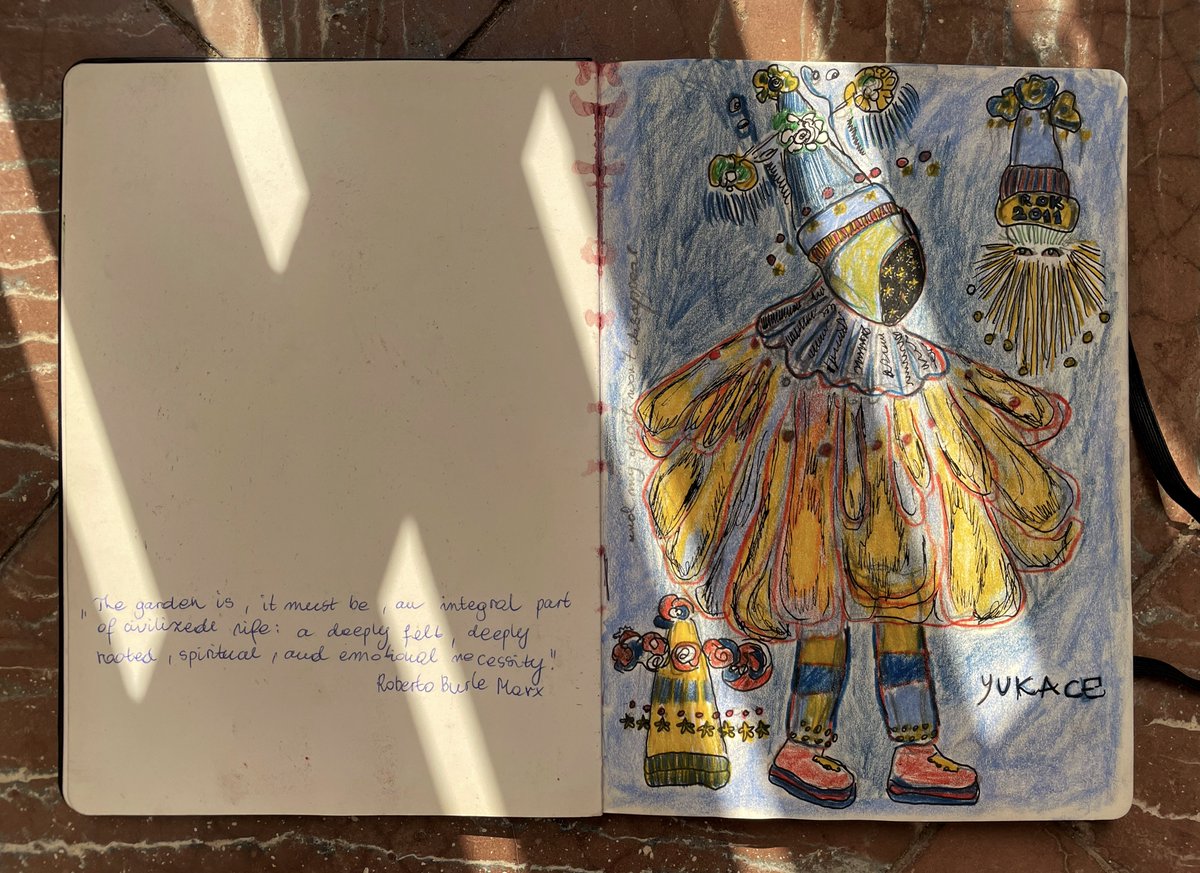 „The garden is, it must be, an integral part
of civilized life: a deeply felt, deeply
rooted, spiritual, and emotional necessity."
Roberto Burle Marx
and my you won't disappear
ROK
2011
YUKACE